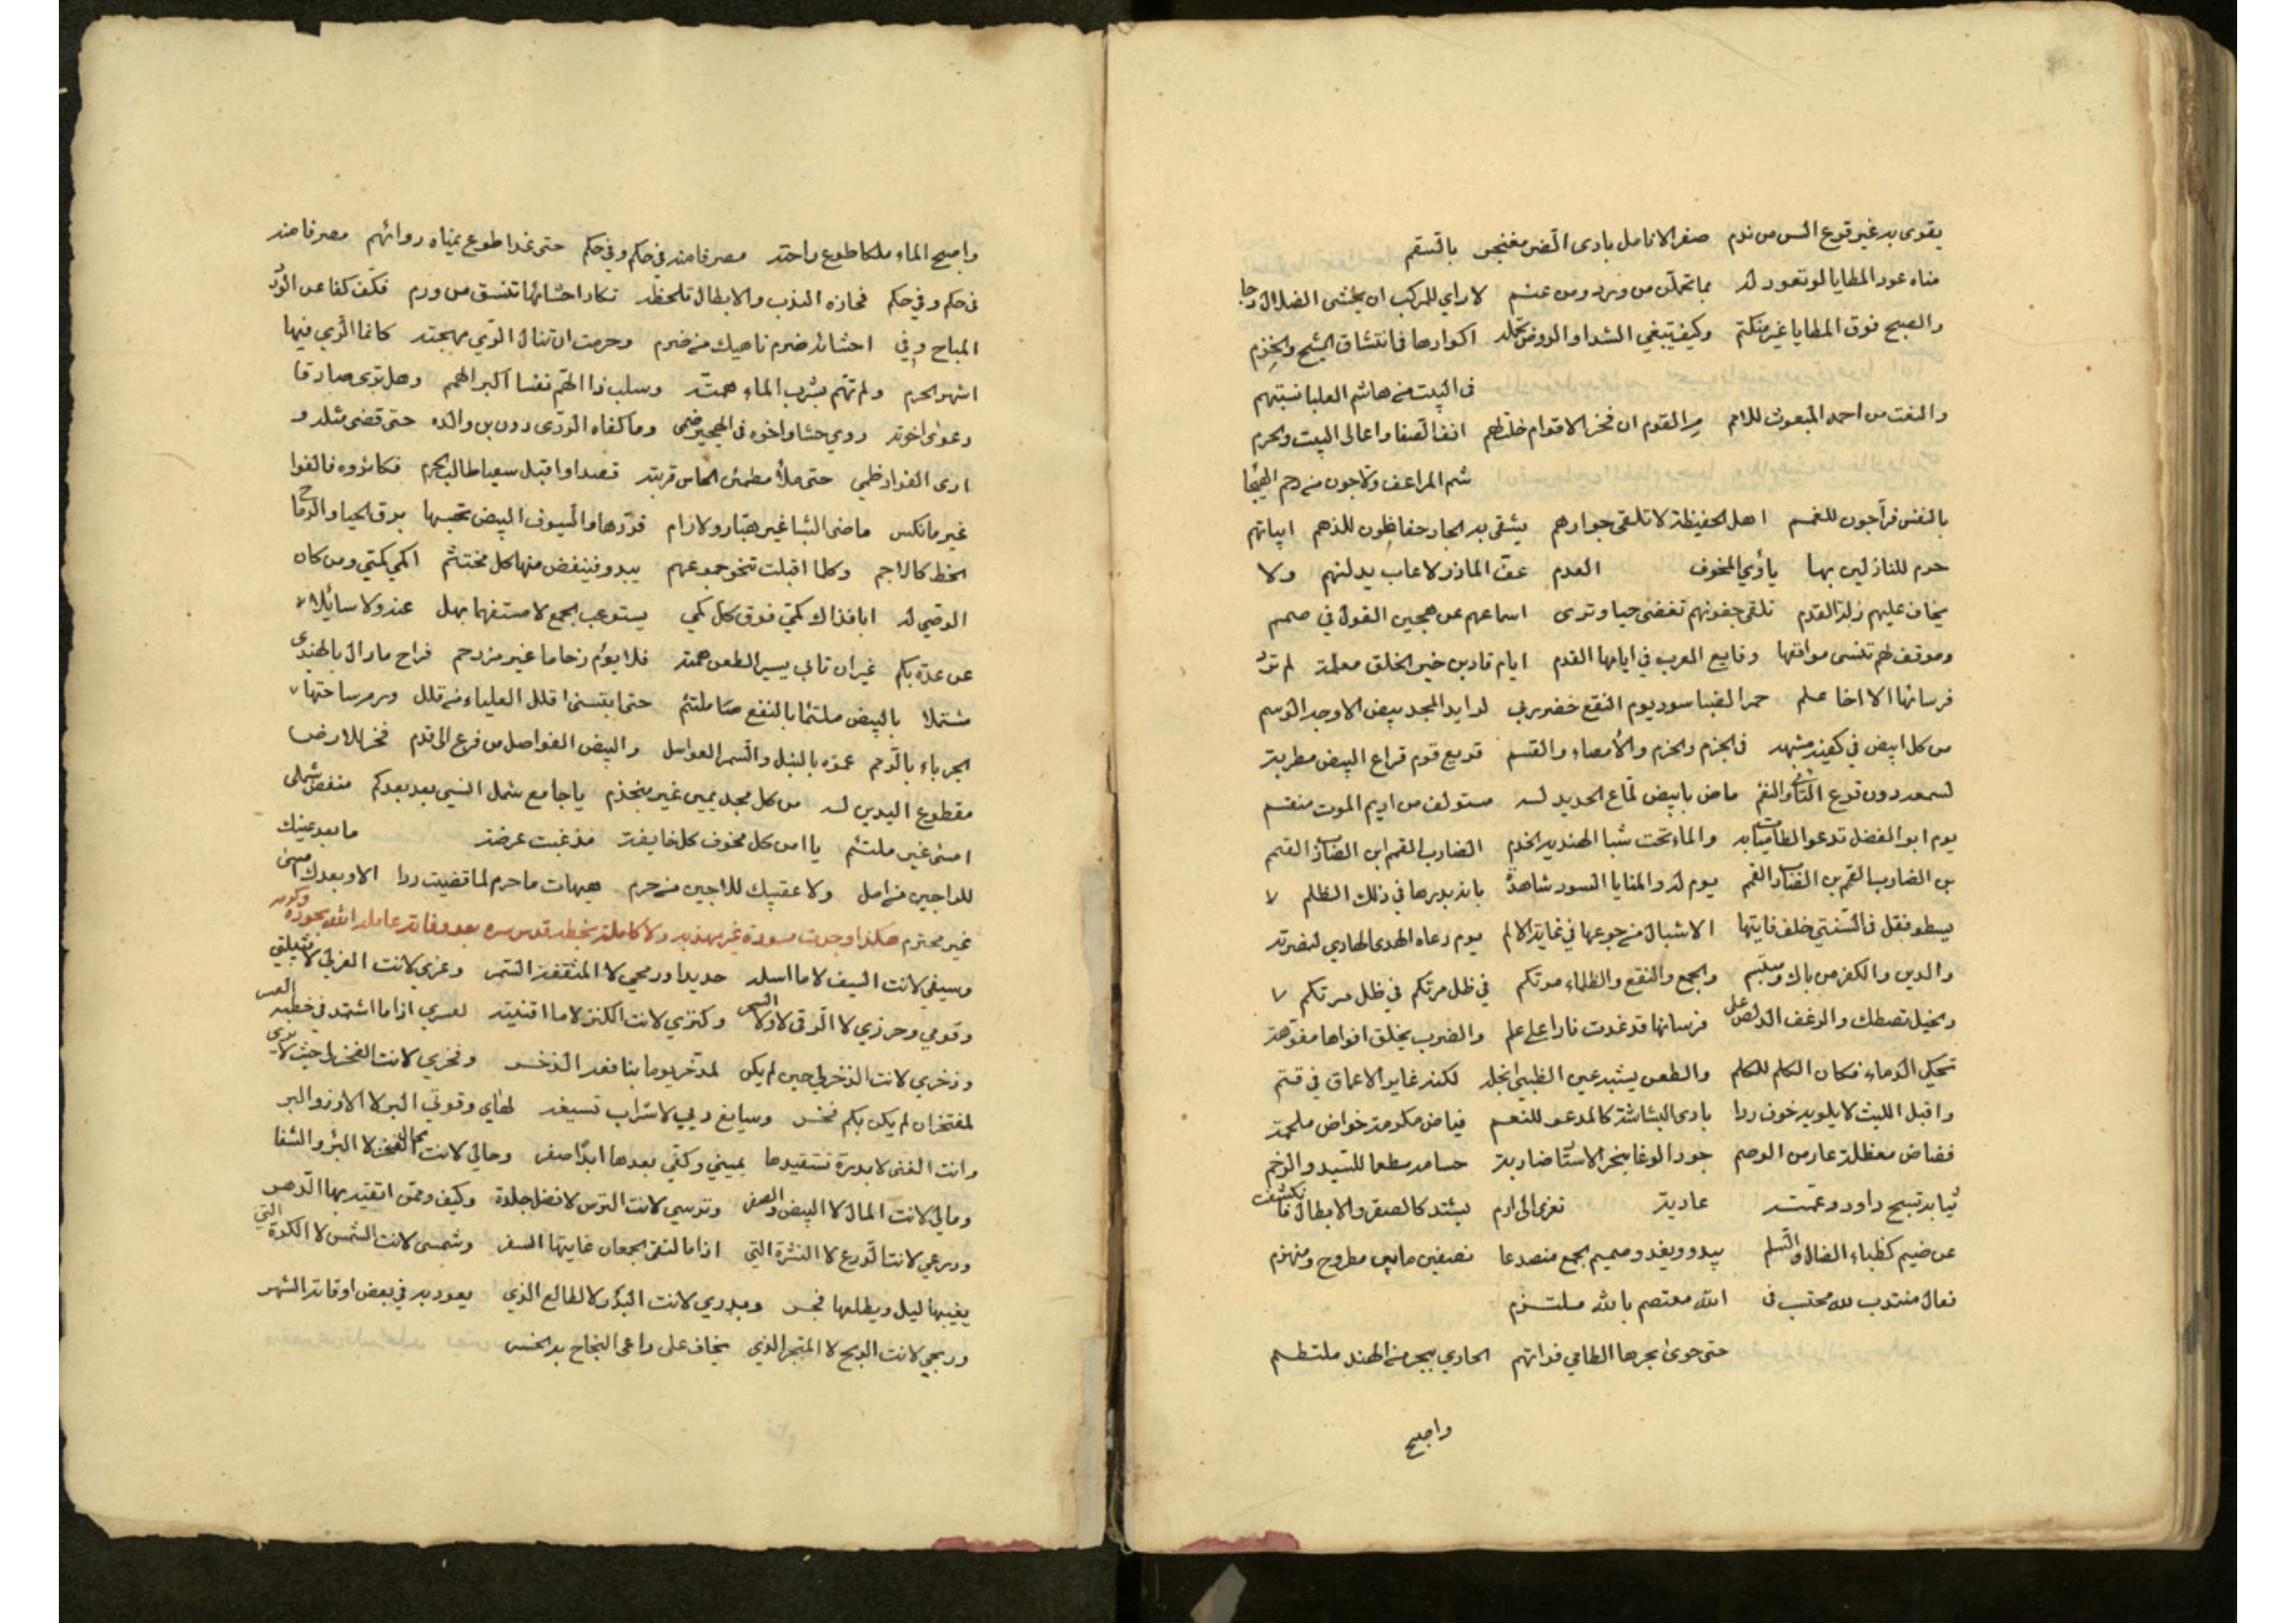 يقوى به غير قرع السن من ندم صفر الانامل بادى الضر مغنجر بالسقم
مناه عود المطايا لو تعود له بما تحملن من وزد ومن عشم لا راي للركب ان يخشى الضلال دجا
والصبح فوق المطايا غير منكتم وكيف تبغي الشذا والروض تحمله اكوارها فانتشاق الشيح والخزم
فى البيت من هاشم العليا نسبتهم
والنعت من احمد المبعوث للامم سر القوم ان فخر الاقوام خلتهم انف الصفا واعالى البيت والحرم
شم المراعف ولاجون من رحم الهيجا
بالنفس فراجون للغمم اهل الحفيظة لا تلقى جوارهم يشقى به الجار حفاظون للذمم ابياتهم
حرم للنازلين بها ياوي المخوف العدم عف المازر لا عاب يدلهم ولا
يخاف عليهم زلة القدم تلقى جفونهم تغضى حيا وترى اسماعهم عن هجين القول في صمم
وموقف لهم تنسى مواقفها وقايع العرب في ايامها القدم ايام قادين خير الخلق معلمة لم تر
فرسانها الا اخا علم حمر الضبا سود يوم النقع خضر ربي لوايد المجد بيض الاوجه الوسم
من كل ابيض في كفيه مشبهه فى الجزم والحزم والامضاء والقسم قريع قوم قراع البيض مطربة
لسمعه دون قرع الناي والنغم ماض بابيض لماع الحديد له مستولف من اديم الموت منقسم
يوم ابو الفضل تدعو الظاميات به والماء تحت شبا الهندية الخذم الضارب القمم ابن الضارب القمم
بن الضارب القمم بن الضارب القمم يوم له والمنايا السود شاهدة بانه بدرها في ذلك الظلم
يسطو فقل فى السبنتي خلف غايتها الاشبال من جوعها في غاية الالم يوم دعاه الهدى الهادي لنصرته
والدين والكفر من باك ومبتسم والجمع والنقع والظلماء مرتكم في ظل مرتكم في ظل مرتكم
والخيل تصطك والزغف الدلاص على فرسانها قد غدت نارا على علم والضرب يخلق افواها مفوهة
تحكي الدماء فكان الكلم للكلم والطعن يشبه عين الظبي انجله لكنه غاير الاعماق في قتم
واقبل الليث لا يلويه خوف ردا بادى البشاشة كالمدعو للنعم فياض مكرمة خواض ملحمة
فضاض معظلة عار من الوصم جود الوغا ينحر الاستاه ضاربة حسامه مطعما للسيد والرخم
ثيابه نسج داود وعمته عادية تعزى الى ارم يشتد كالصقر والابطال تكشف
عن ضيم كظباء الضال والسلم يبدو ويغدو صميم الجمع منصدعا نصفين ما بين مطروح ومنهزم
فعال منتدب لله محتسب فى الله معتصم بالله ملتزم
حتى حوى بحرها الطامي فراتهم الجاري ببحر من الهند ملتطم
واصبح
واصبح الماء ملكا طوع راحته مصرفا منه في حكم وفي حكم حتى غدا طوع يمناه روائهم مصرفا منه
فى حكم وفي حكم فحازه الندب والابطال تلحظه تكاد احشائها تنشق من ورم فكف كفا عن الورد
المباح وفي احشائه ضرم ناهيك من ضرم وحرمت ان تنال الري مهجته كانما الري فيها
اشهر الحرم ولم تهم بشرب الماء همته وسلب ذا الهم نفسا اكبر الهمم وهل ترى صادقا
دعوى اخوته روي حشا واخوه فى الهجير ظمي وما كفاه الردى دون بن والده حتى قضى مثله و
ارى الفواد ظمي حتى ملأ مطمئن الجاس قربته قصدا واقبل سعيا طالب الحرم فكاثروه فالفوا
غير ما نكس ماضى الشبا غير هيار ولا رام فردها والسيوف البيض تحسبها برق الحيا والرماح
الخط كالاجم وكلما اقبلت تنحو جموعهم يبدو فينفض منها كل محتشم اكمي كمتي ومن كان
الوصي له ابا فذاك كمتي فوق كل كمي يستوعب الجمع لا مستفهما بهل عنه ولا سايلا
عن عده بكم غير ان تابي يسير الطعن همته فلا يوم زحاما غير مزدحم فراح مارال بالهندى
مشتملا بالبيض ملتثما بالنقع ملتئم حتى ابتنى قلل العلياء من قلل ورم ساحتها
الجرباء بالرحم عموه بالنبل والسمر العواسل والبيض الفواصل من فرع الى قدم فخر للارض
مقطوع اليدين له من كل مجد يمين غير منجذم يا جامع شمل النبي بعد بعدكم منفض شملي
امسى غير ملتئم يا امن كل مخوف كل خايفة مذ غبت عرضة ما بعد عينيك
للراجين من امل ولا عقيبك للاجين من حرم هيهات ما حرم لما قضيت ردا الا وبعدك امسى
غير محترم هكذا وجدت مسودة غير مهذبه ولا كاملة بخطه قدس سره بعد وفاته عامله الله بجوده وكرمه
وسيفي لانت السيف لا ما اسله حديدا ورمحي لا المثقفة السمر وعزي لانت العز لي لا قبيلتي
وقومي وحرزي لا الرقى لا ولا السحر وكنزي لانت الكنز لا ما اقتنيته لعسري اذا ما اشتد في خطبه العسر
وذخري لانت الذخر لي حين لم يكن لمدخر يوما بنا فعه الذخر وفخري لانت الفخر لي حيث لا يرى
لمفتخر ان لم يكن بكم فخر وسايغ ربي لا شراب تسيغه لهاي وقوتي البر لا الارز والبر
وانت الغنى لا بدرة تستفيدها يميني وكفي بعدها ابدا صفر وحالي لانت الحال لا البر والشفا
ومالي لانت المال لا البيض والصفر وترسي لانت الترس لا فضل جلدة وكيف وممن اتقيه بها الدهر
ودرعي لانت الدرع لا النثرة التي اذا ما التقى الجمعان غايتها السفر وشمسي لانت الشمس لا الكرة التي
يغيبها ليل ويطلعها فجر وبدري لانت البدر لا الطالع الذي يعود به في بعض اوقاته الشهر
وربحي لانت الربح لا المتجر الذي يخاف على راعى النجاح به الخسر